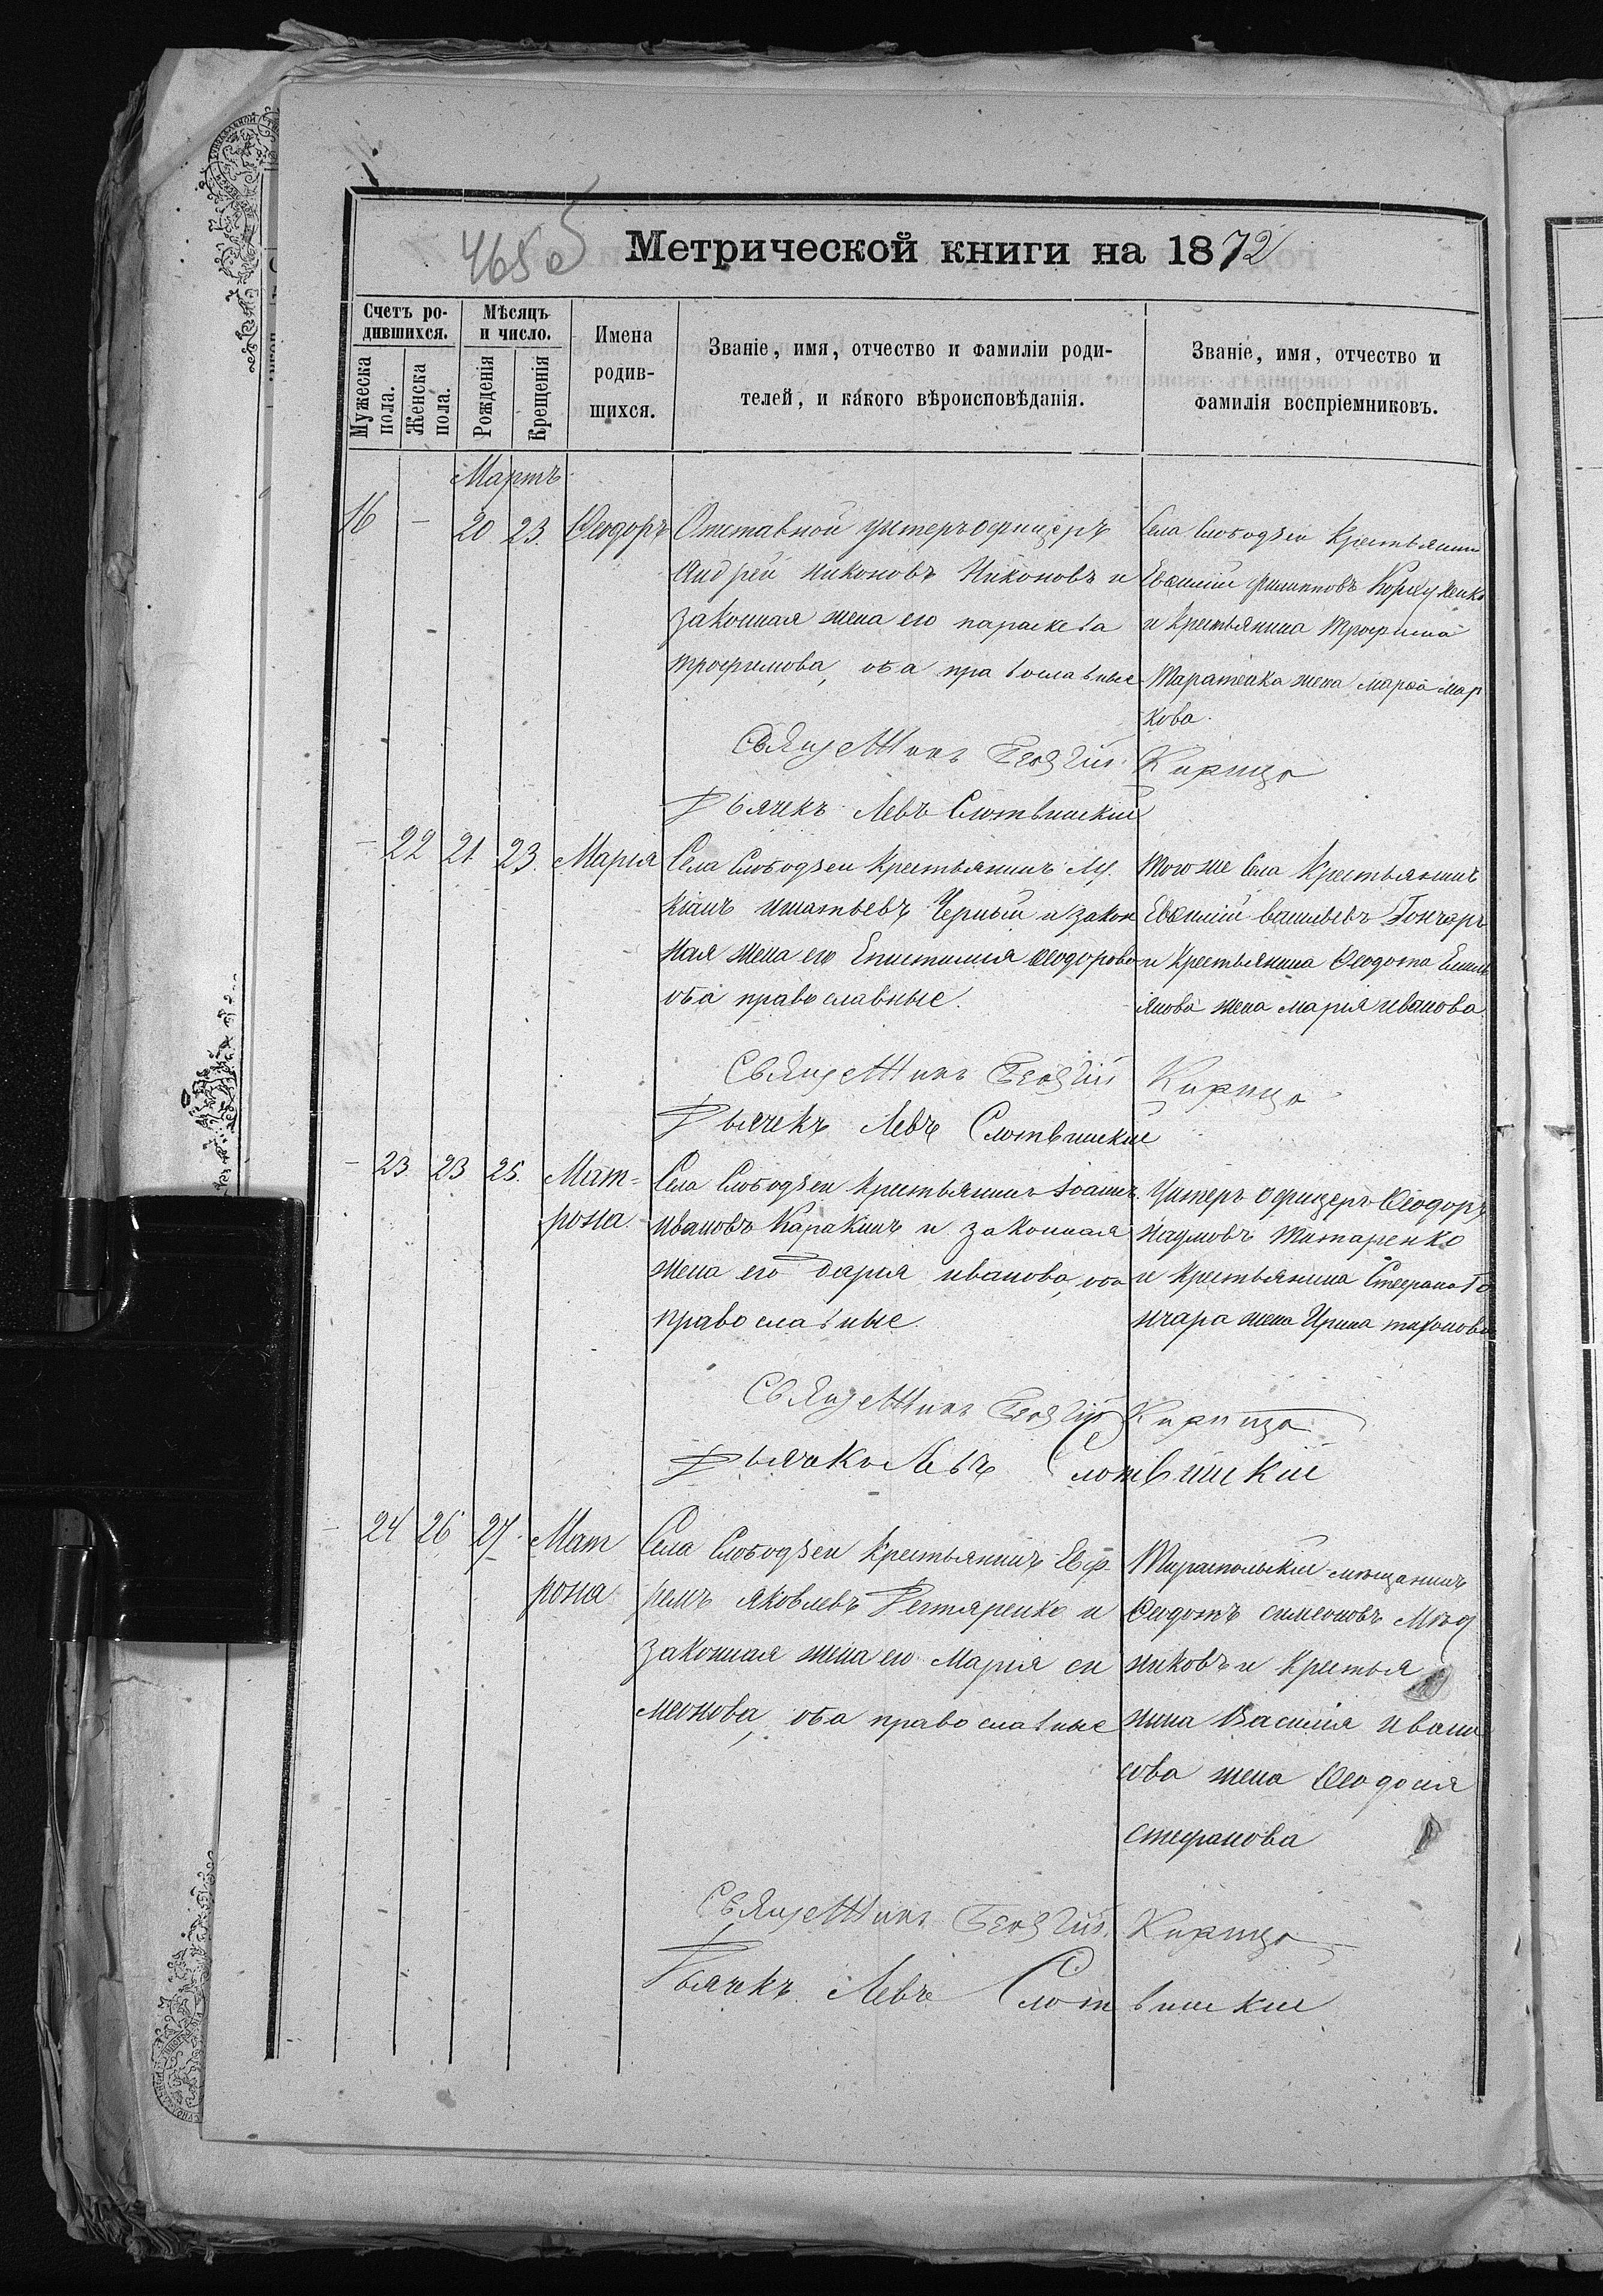 465 об
Метрической книги на 1872
Счетъ ро-
дившихся.
Мѣсяцъ
и число.
Мужеска
пола.
Женска
пола.
Рожденія
Крещенія
Имена
родив-
шихся.
Званіе, имя, отчество и фамиліи роди-
телей, и какого вѣроисповѣданія.
Званіе, имя, отчество и
фамилія воспріемниковъ.
Мартъ
16 – 20 23. Ѳеодоръ
Отставной унтеръ офицеръ
Андрей Никоновъ Никоновъ и
законная жена его параскева
трофимова, оба православные
Села Слободзеи Крестьянинъ
Евѳимій филипповъ
и Крестьянина Трофима
Таратенка жена марѳа мар
кова.
Священникъ Георгій Кирица
Дьячекъ Левъ Слотвинскій
– 22 21 23. Марія
Села Слободзеи Крестьянинъ Лу
кіанъ игнатьевъ Черный и закон
ная жена его Епистимія Ѳеодорова
оба православные.
Того же Села Крестьянинъ
Евѳимій васильевъ Гончаръ
и Крестьянина Ѳеодота Емель
янова жена марія иванова
Священникъ Георгій Кирица
Дьячекъ Левъ Слотвинскій
– 23. 23 25. Мат=
рона.
Села Слободзеи Крестьянинъ Іоаннъ
ивановъ Каракинъ и законная
жена его дарія иванова, оба
православные.
Унтеръ офицеръ Ѳеодоръ
наумовъ Титаренко
и Крестьянина Стефана Го
нчара жена Ирина тихонова
Священникъ Георгій Кирица
Дьячекъ Левъ Слотвинскій
– 24 26 27. Мат
рона
Села Слободзеи Крестьянинъ Еф
ремъ яковлевъ Дегтяренко и
законная жена его Марія си
меонова, оба православные
Тираспольскій мѣщанинъ
Ѳедотъ симеоновъ Мѣд
никовъ и Крестья
нина Василія
жена Ѳеодосія
стефанова
Священникъ Георгій Кирица
Дьячекъ Левъ Слотвинскій